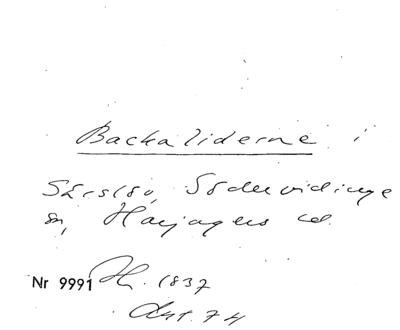 Backaliderne i
Särslöv, Södervidinge
sn, Harjagers hd.
Nr 9991 1837
74